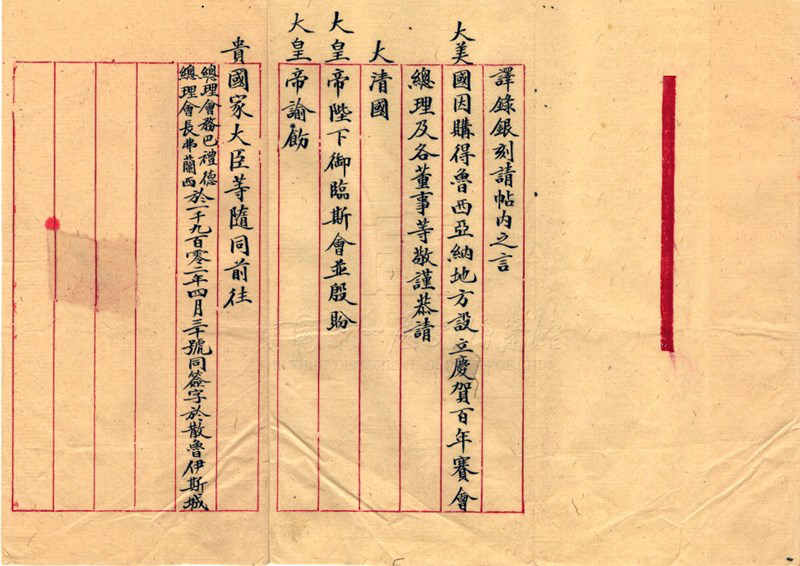 譯錄銀刻請帖內之言
大美國因購得魯西亞納地方設立慶賀百年賽會
總理及各董事等敬謹恭請
大清國
大皇帝陛下御臨斯會並殷盼
大皇帝諭飭
貴國家大臣等隨同前往
總理會務巴禮德
總理會長弗蘭西
於一千九百零二年四月三十號同簽字於散魯伊斯城